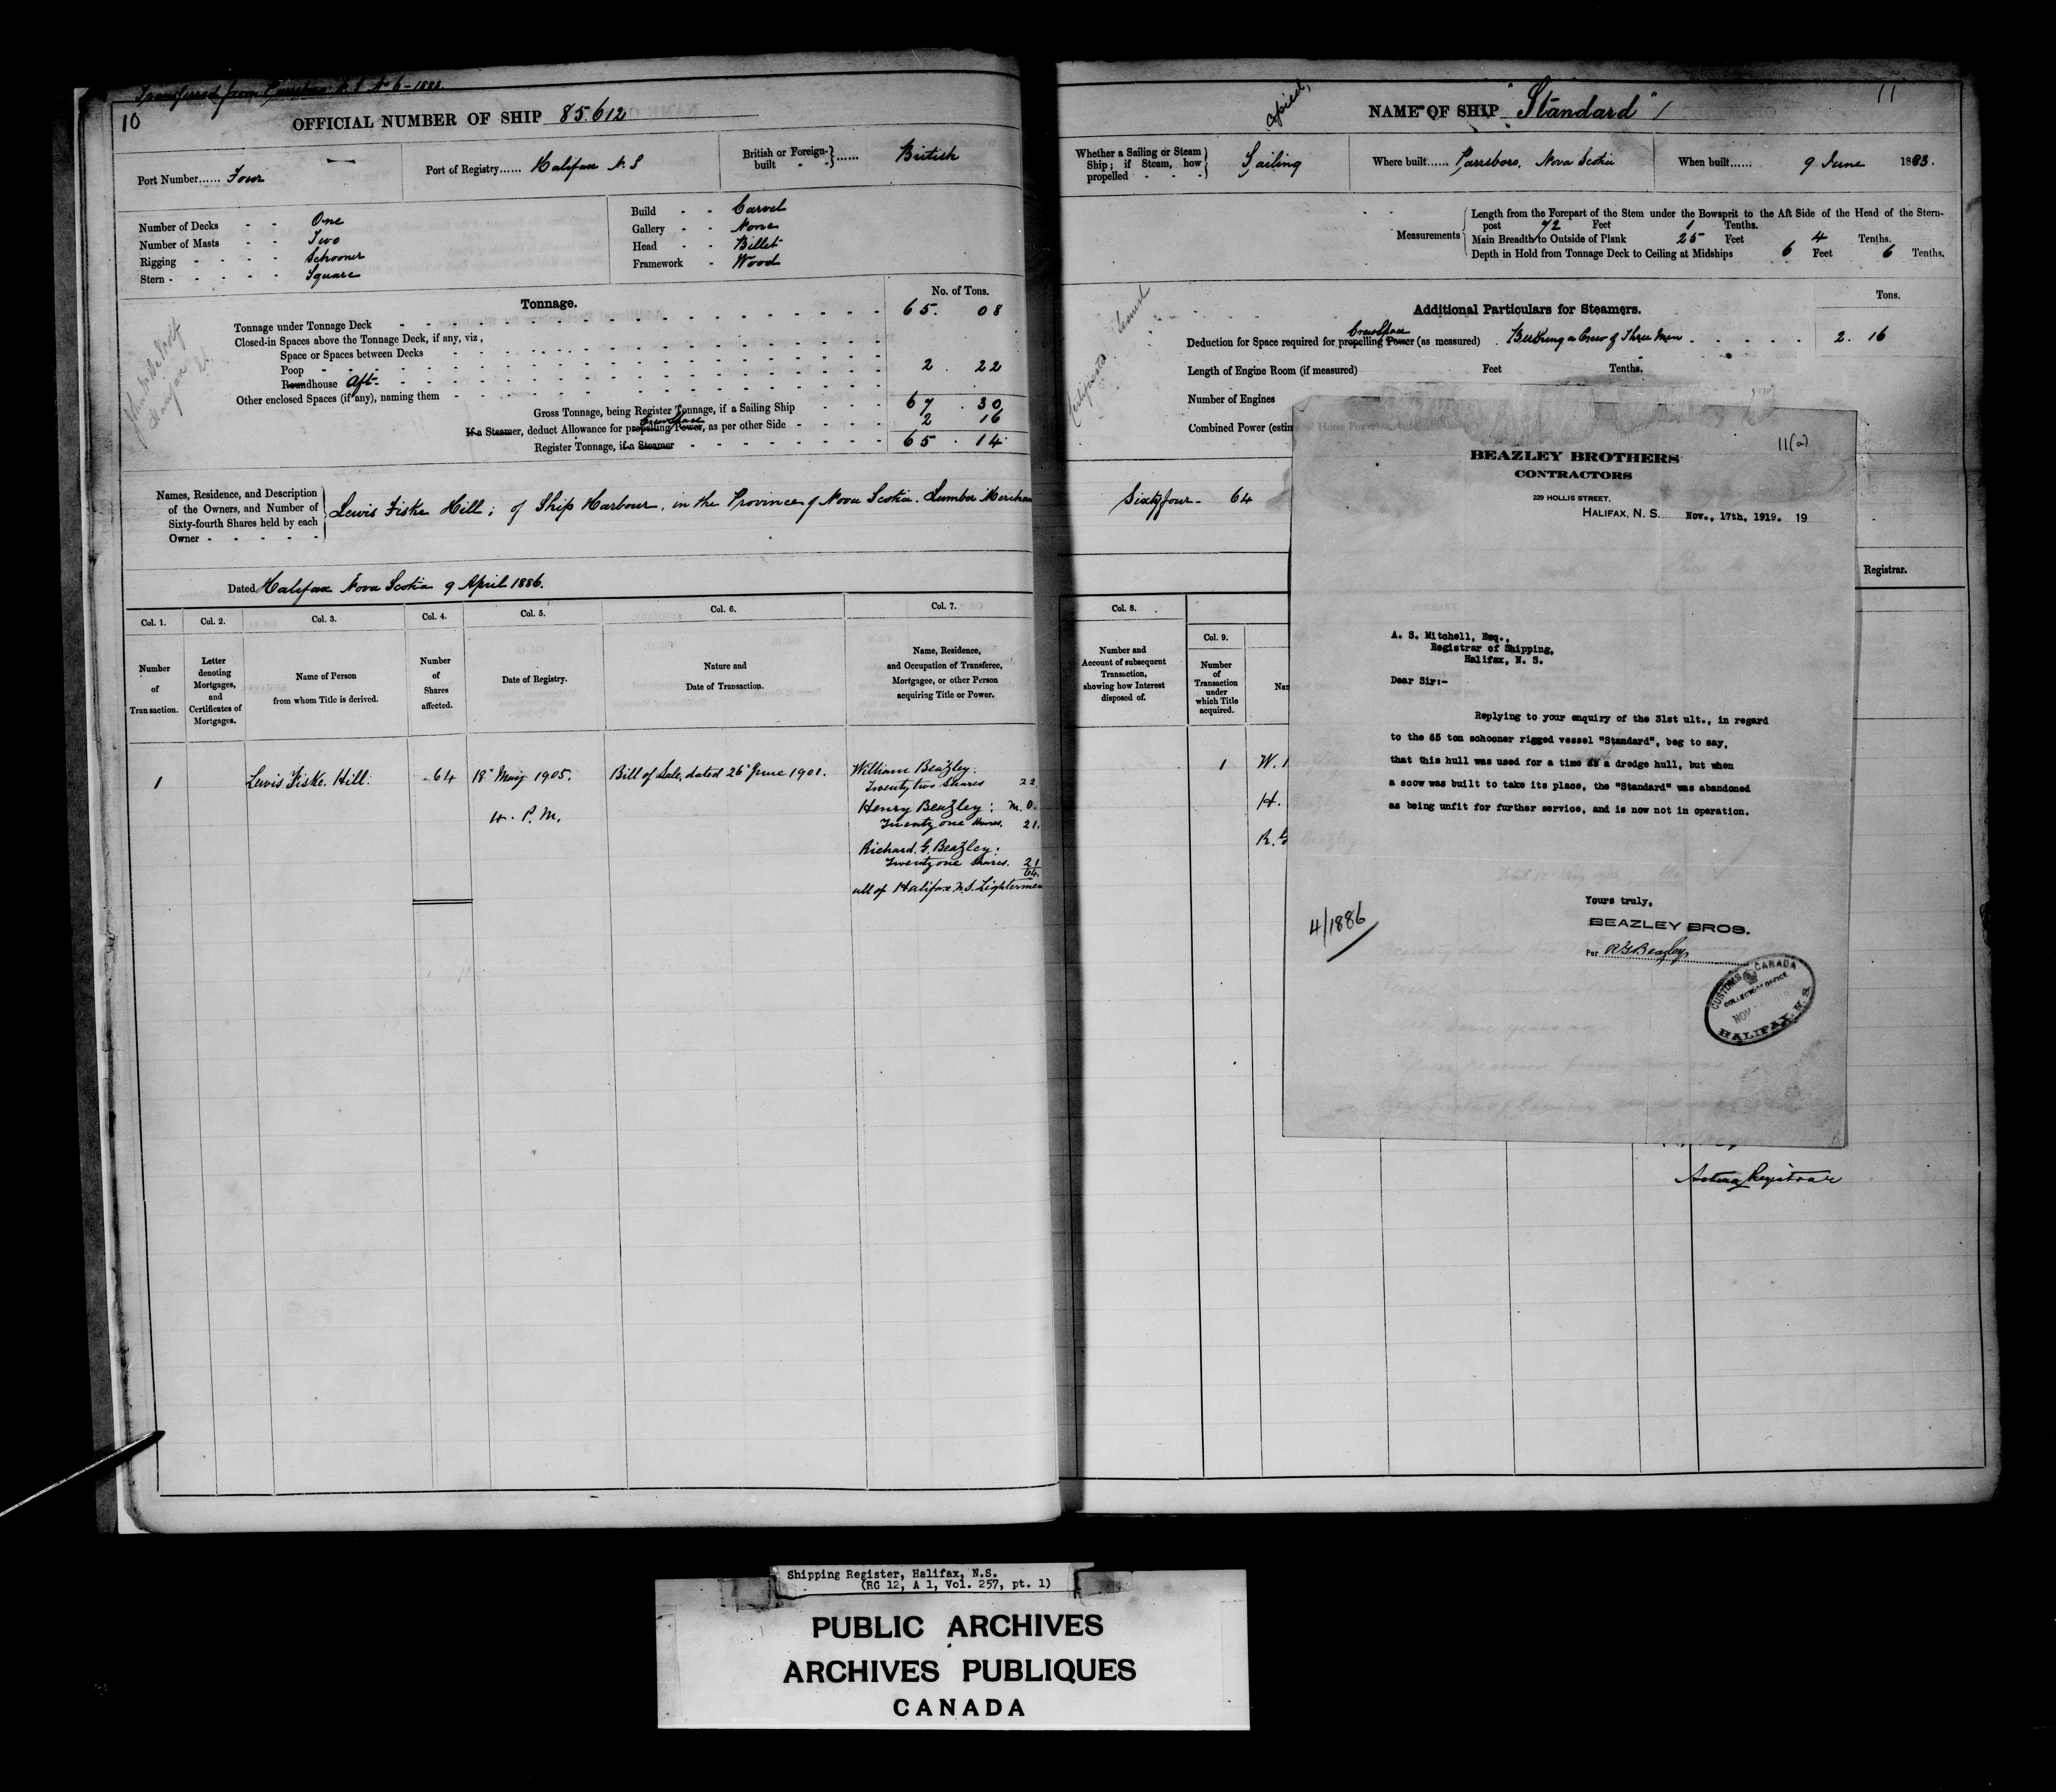 Transferred from Parrsboro N.S. No 6-1883.
10
OFFICIAL NUMBER OF SHIP 85.612
Port Number...... Four
Port of Registry...... Halifax N.S
British or Foreign-built - - }...... British
Number of Decks - - One
Number of Masts - - Two
Rigging - - - - Schooner
Stern - - - - - Square
Build - - Carvel
Gallery - - None
Head - - Billet
Framework - Wood
Tonnage.
No. of Tons.
Tonnage under Tonnage Deck 65. 08
Closed-in Spaces above the Tonnage Deck, if any, viz,
Space or Spaces between Decks
Poop 2. 22
Roundhouse Aft
Other enclosed Spaces (if any), naming them
Gross Tonnage, being Register Tonnage, if a Sailing Ship 67. 30
Crew Space
If a Steamer, deduct Allowance for propelling Power, as per other Side 2 16
Register Tonnage, if a Steamer 65. 14
Names, Residence, and Description
of the Owners, and Number of
Sixty-fourth Shares held by each
Owner - - - - -
Lewis Fiske Hill; of Ship Harbour, in the Province of Nova Scotia. Lumber Merchan
Dated Halifax Nova Scotia 9 April 1886.
Col. 1. Col. 2. Col. 3. Col. 4. Col. 5. Col. 6. Col. 7.
Number
of
Transaction.
Letter
denoting
Mortgages,
and
Certificates of
Mortgages.
Name of Person
from whom Title is derived.
Number
of
Shares
affected.
Date of Registry.
Nature and
Date of Transaction.
Name, Residence,
and Occupation of Transferee,
Mortgagee, or other Person
acquiring Title or Power.
1
Lewis Fiske Hill.
64
18" May 1905.
4. P.M.
Bill of Sale, dated 26 June 1901.
William Beazley.
Twenty two Shares 22.
Henry Beazley: M.O.
Twenty one Shares. 21.
Richard. G. Beazley:
Twenty one Shares. 21
64.
all of Halifax N.S. Lightermen
Copied,
NAME OF SHIP "Standard"
11
Whether a Sailing or Steam
Ship; if Steam, how
propelled - - -
Sailing
Where built...... Parrsboro, Nova Scotia
When built...... 9 June 1883.
Measurements
Length from the Forepart of the Stem under the Bowsprit to the Aft Side of the Head of the Stern-
post 72 Feet 1 Tenths.
Main Breadth to Outside of Plank 25 Feet 4 Tenths.
Depth in Hold from Tonnage Deck to Ceiling at Midships 6 Feet 6 Tenths.
Additional Particulars for Steamers.
Tons.
Crew Space
Deduction for Space required for propelling Power (as measured) Berthing a Crew of Three men 2. 16
Length of Engine Room (if measured) Feet Tenths.
Number of Engines
Combined Power (estim
Sixty four - 64
Registrar.
Col. 8.
Number and
Account of subsequent
Transaction,
showing how Interest
disposed of.
Col. 9.
Number
of
Transaction
under
which Title
acquired.
Nar
1
W.
H.
R. G
11(a)
BEAZLEY BROTHERS
CONTRACTORS
229 HOLLIS STREET,
HALIFAX, N. S. Nov., 17th, 1919. 19
A. S. Mitchell, Esq.,
Registrar of Shipping,
Halifax, N. S.
Dear Sir:-
Replying to your enquiry of the 31st ult., in regard
to the 65 ton schooner rigged vessel "Standard", beg to say,
that this hull was used for a time as a dredge hull, but when
a scow was built to take its place, the "Standard" was abandoned
as being unfit for further service, and is now not in operation.
Yours truly,
BEAZLEY BROS.
Per R G Beazley
4/1886
CUSTOMS CANADA
COLLECTOR'S OFFICE
NOV
HALIFAX, N. S.
Acting Registrar
Shipping Register, Halifax, N.S.
(RG 12, A 1, Vol. 257, pt. 1)
PUBLIC ARCHIVES
ARCHIVES PUBLIQUES
CANADA